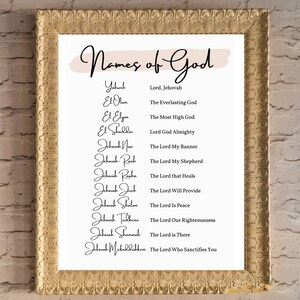 Names of God
Yahweh Lord, Jehovah
El Olam The Everlasting God
El Elyon The Most High God
El Shaddai Lord God Almighty
Jehovah Nissi The Lord My Banner
Jehovah Raah The Lord My Shepherd
Jehovah Rapha The Lord that Heals
Jehovah Jireh The Lord Will Provide
Jehovah Shalom The Lord Is Peace
Jehovah Tsidkenu The Lord Our Righteousness
Jehovah Shammah The Lord is There
Jehovah Mekoddishkem The Lord Who Sanctifies You